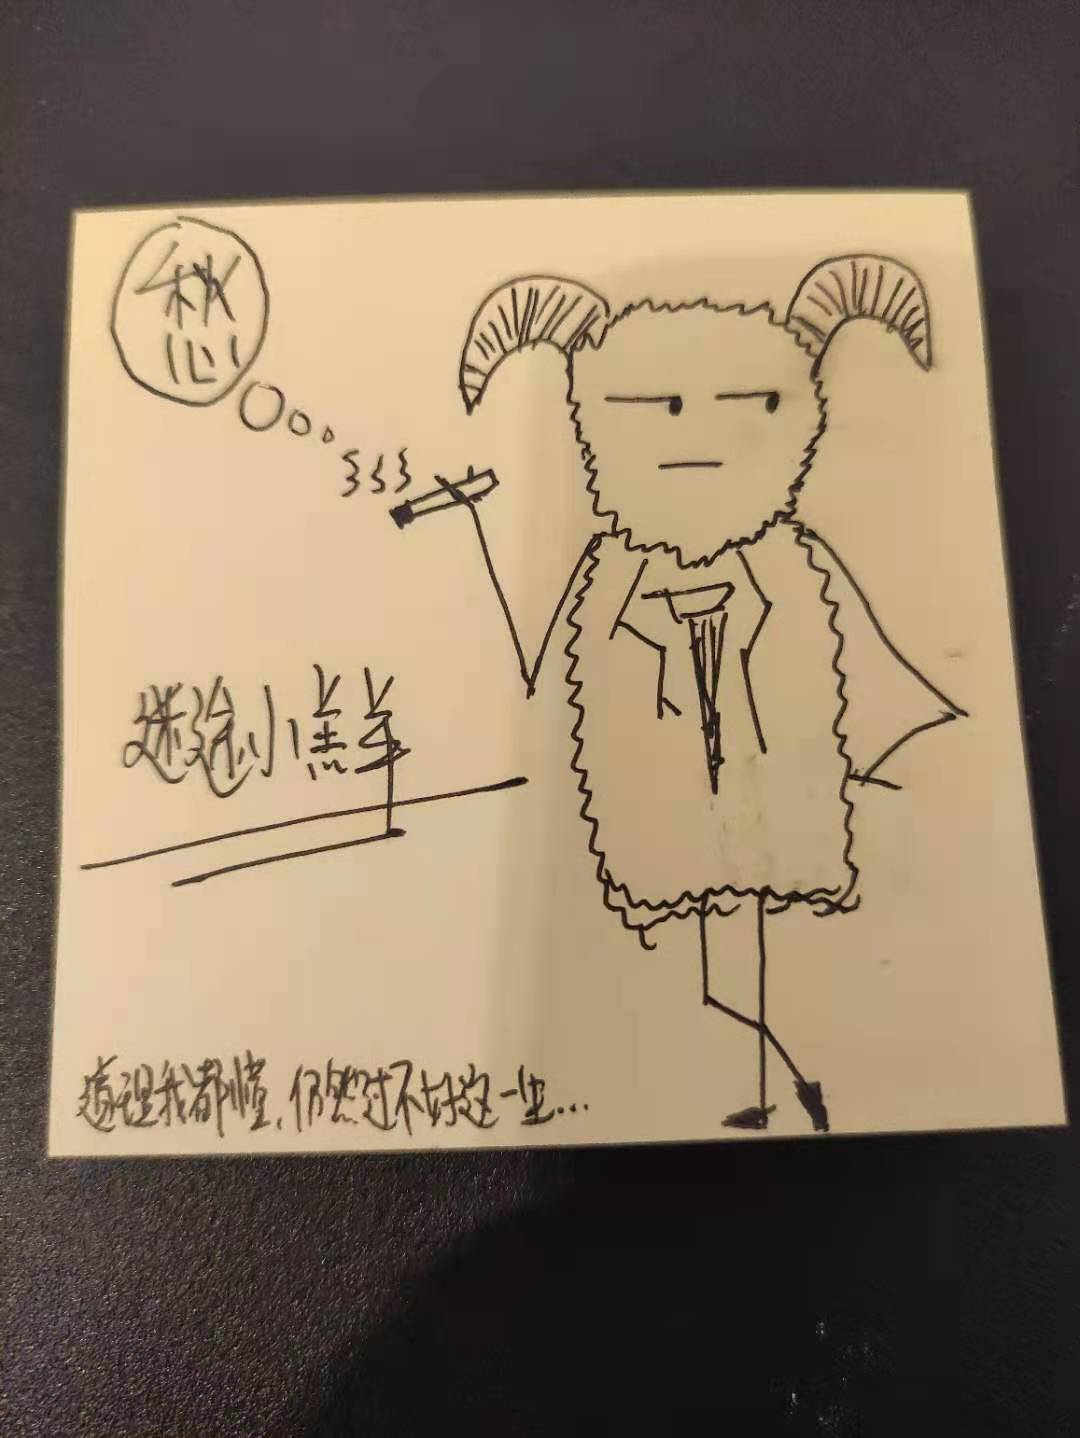 愁
迷途小羔羊
道理我都懂,仍然过不好这一生...